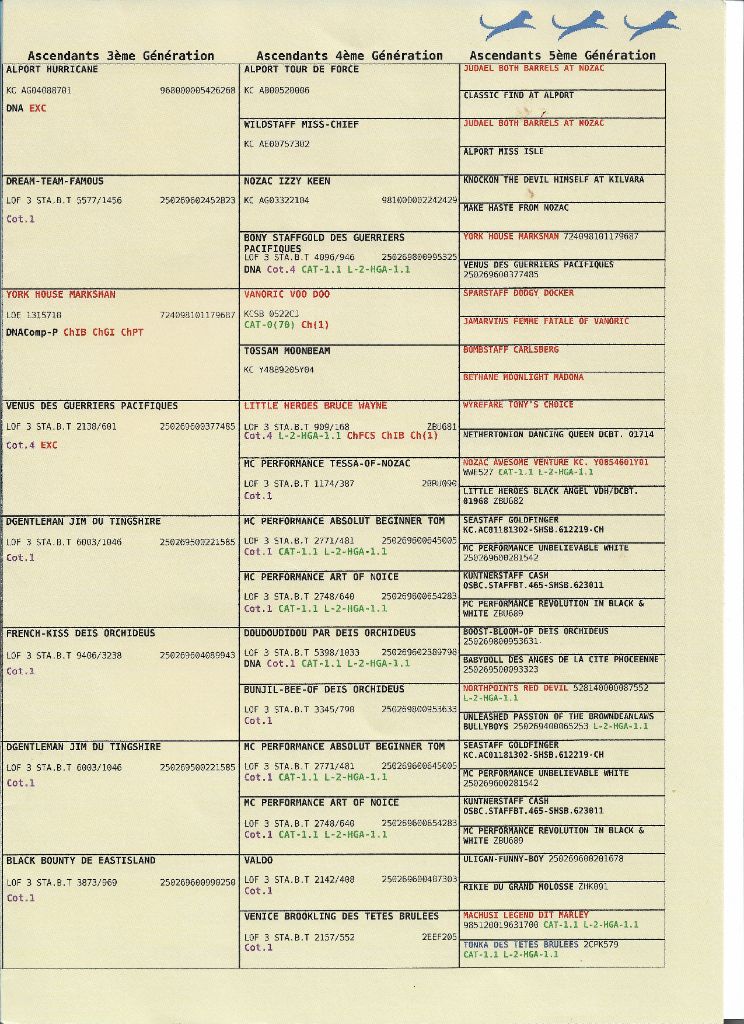 Ascendants 3ème Génération
ALPORT HURRICANE
KC AG04088701 968000005426268
DNA EXC
DREAM-TEAM-FAMOUS
LOF 3 STA.B.T 5577/1456 250269602452823
Cot.1
YORK HOUSE MARKSMAN
LOE 1315718 724098101179687
DNAComp-P ChIB ChGI ChPT
VENUS DES GUERRIERS PACIFIQUES
LOF 3 STA.B.T 2138/601 250269600377485
Cot.4 EXC
DGENTLEMAN JIM DU TINGSHIRE
LOF 3 STA.B.T 6003/1046 250269500221585
Cot.1
FRENCH-KISS DEIS ORCHIDEUS
LOF 3 STA.B.T 9406/3238 250269604089943
Cot.1
DGENTLEMAN JIM DU TINGSHIRE
LOF 3 STA.B.T 6003/1046 250269500221585
Cot.1
BLACK BOUNTY DE EASTISLAND
LOF 3 STA.B.T 3873/969 250269600990250
Cot.1
Ascendants 4ème Génération
ALPORT TOUR DE FORCE
KC AB00520006
WILDSTAFF MISS-CHIEF
KC AE00757302
NOZAC IZZY KEEN
KC AG03322104 981000002242429
BONY STAFFGOLD DES GUERRIERS
PACIFIQUES
LOF 3 STA.B.T 4096/946 250269800995325
DNA Cot.4 CAT-1.1 L-2-HGA-1.1
VANORIC VOO DOO
KCSB 0522CJ
CAT-0(70) Ch(1)
TOSSAM MOONBEAM
KC Y4889205Y04
LITTLE HEROES BRUCE WAYNE
LOF 3 STA.B.T 909/168 ZBU681
Cot.4 L-2-HGA-1.1 ChFCS ChIB Ch(1)
MC PERFORMANCE TESSA-OF-NOZAC
LOF 3 STA.B.T 1174/387
Cot.1
MC PERFORMANCE ABSOLUT BEGINNER TOM
LOF 3 STA.B.T 2771/481 250269600645005
Cot.1 CAT-1.1 L-2-HGA-1.1
MC PERFORMANCE ART OF NOICE
LOF 3 STA.B.T 2748/640 250269600654283
Cot.1 CAT-1.1 L-2-HGA-1.1
DOUDOUDIDOU PAR DEIS ORCHIDEUS
LOF 3 STA.B.T 5398/1033 250269602389798
DNA Cot.1 CAT-1.1 L-2-HGA-1.1
BUNJIL-BEE-OF DEIS ORCHIDEUS
LOF 3 STA.B.T 3345/790 250269800953633
Cot.1
MC PERFORMANCE ABSOLUT BEGINNER TOM
LOF 3 STA.B.T 2771/481 250269600645005
Cot.1 CAT-1.1 L-2-HGA-1.1
MC PERFORMANCE ART OF NOICE
LOF 3 STA.B.T 2748/640 250269600654283
Cot.1 CAT-1.1 L-2-HGA-1.1
VALDO
LOF 3 STA.B.T 2142/408 250269600407303
Cot.1
VENICE BROOKLING DES TETES BRULEES
LOF 3 STA.B.T 2157/552 2EEF205
Cot.1
Ascendants 5ème Génération
JUDAEL BOTH BARRELS AT NOZAC
CLASSIC FIND AT ALPORT
JUDAEL BOTH BARRELS AT NOZAC
ALPORT MISS ISLE
KNOCKON THE DEVIL HIMSELF AT KILVARA
MAKE HASTE FROM NOZAC
YORK HOUSE MARKSMAN 724098101179687
VENUS DES GUERRIERS PACIFIQUES
250269600377485
SPARSTAFF DODGY DOCKER
JAMARVINS FEMME FATALE OF VANORIC
BOMBSTAFF CARLSBERG
BETHANE MOONLIGHT MADONA
WYREFARE TONY'S CHOICE
NETHERTONION DANCING QUEEN DCBT. 01714
NOZAC AWESOME VENTURE KC. Y0854601Y01
WWE527 CAT-1.1 L-2-HGA-1.1
LITTLE HEROES BLACK ANGEL VDH/DCBT.
01968 ZBUG82
SEASTAFF GOLDFINGER
KC.AC01181302-SHSB.612219-CH
MC PERFORMANCE UNBELIEVABLE WHITE
250269600281542
KUNTNERSTAFF CASH
OSBC.STAFFBT.465-SHSB.623011
MC PERFORMANCE REVOLUTION IN BLACK &
WHITE ZBU689
BOOST-BLOOM-OF DEIS ORCHIDEUS
250269800953631
BABYDOLL DES ANGES DE LA CITE PHOCEENNE
250269500093323
NORTHPOINTS RED DEVIL 528140000087552
L-2-HGA-1.1
UNLEASHED PASSION OF THE BROWNDEANLAWS
BULLYBOYS 250269400065253 L-2-HGA-1.1
SEASTAFF GOLDFINGER
KC.AC01181302-SHSB.612219-CH
MC PERFORMANCE UNBELIEVABLE WHITE
250269600281542
KUNTNERSTAFF CASH
OSBC.STAFFBT.465-SHSB.623011
MC PERFORMANCE REVOLUTION IN BLACK &
WHITE ZBU689
ULIGAN-FUNNY-BOY 250269600201678
RIKIE DU GRAND MOLOSSE ZHK091
MACHUSI LEGEND DIT MARLEY
985120019631700 CAT-1.1 L-2-HGA-1.1
TONKA DES TETES BRULEES 2CPK579
CAT-1.1 L-2-HGA-1.1